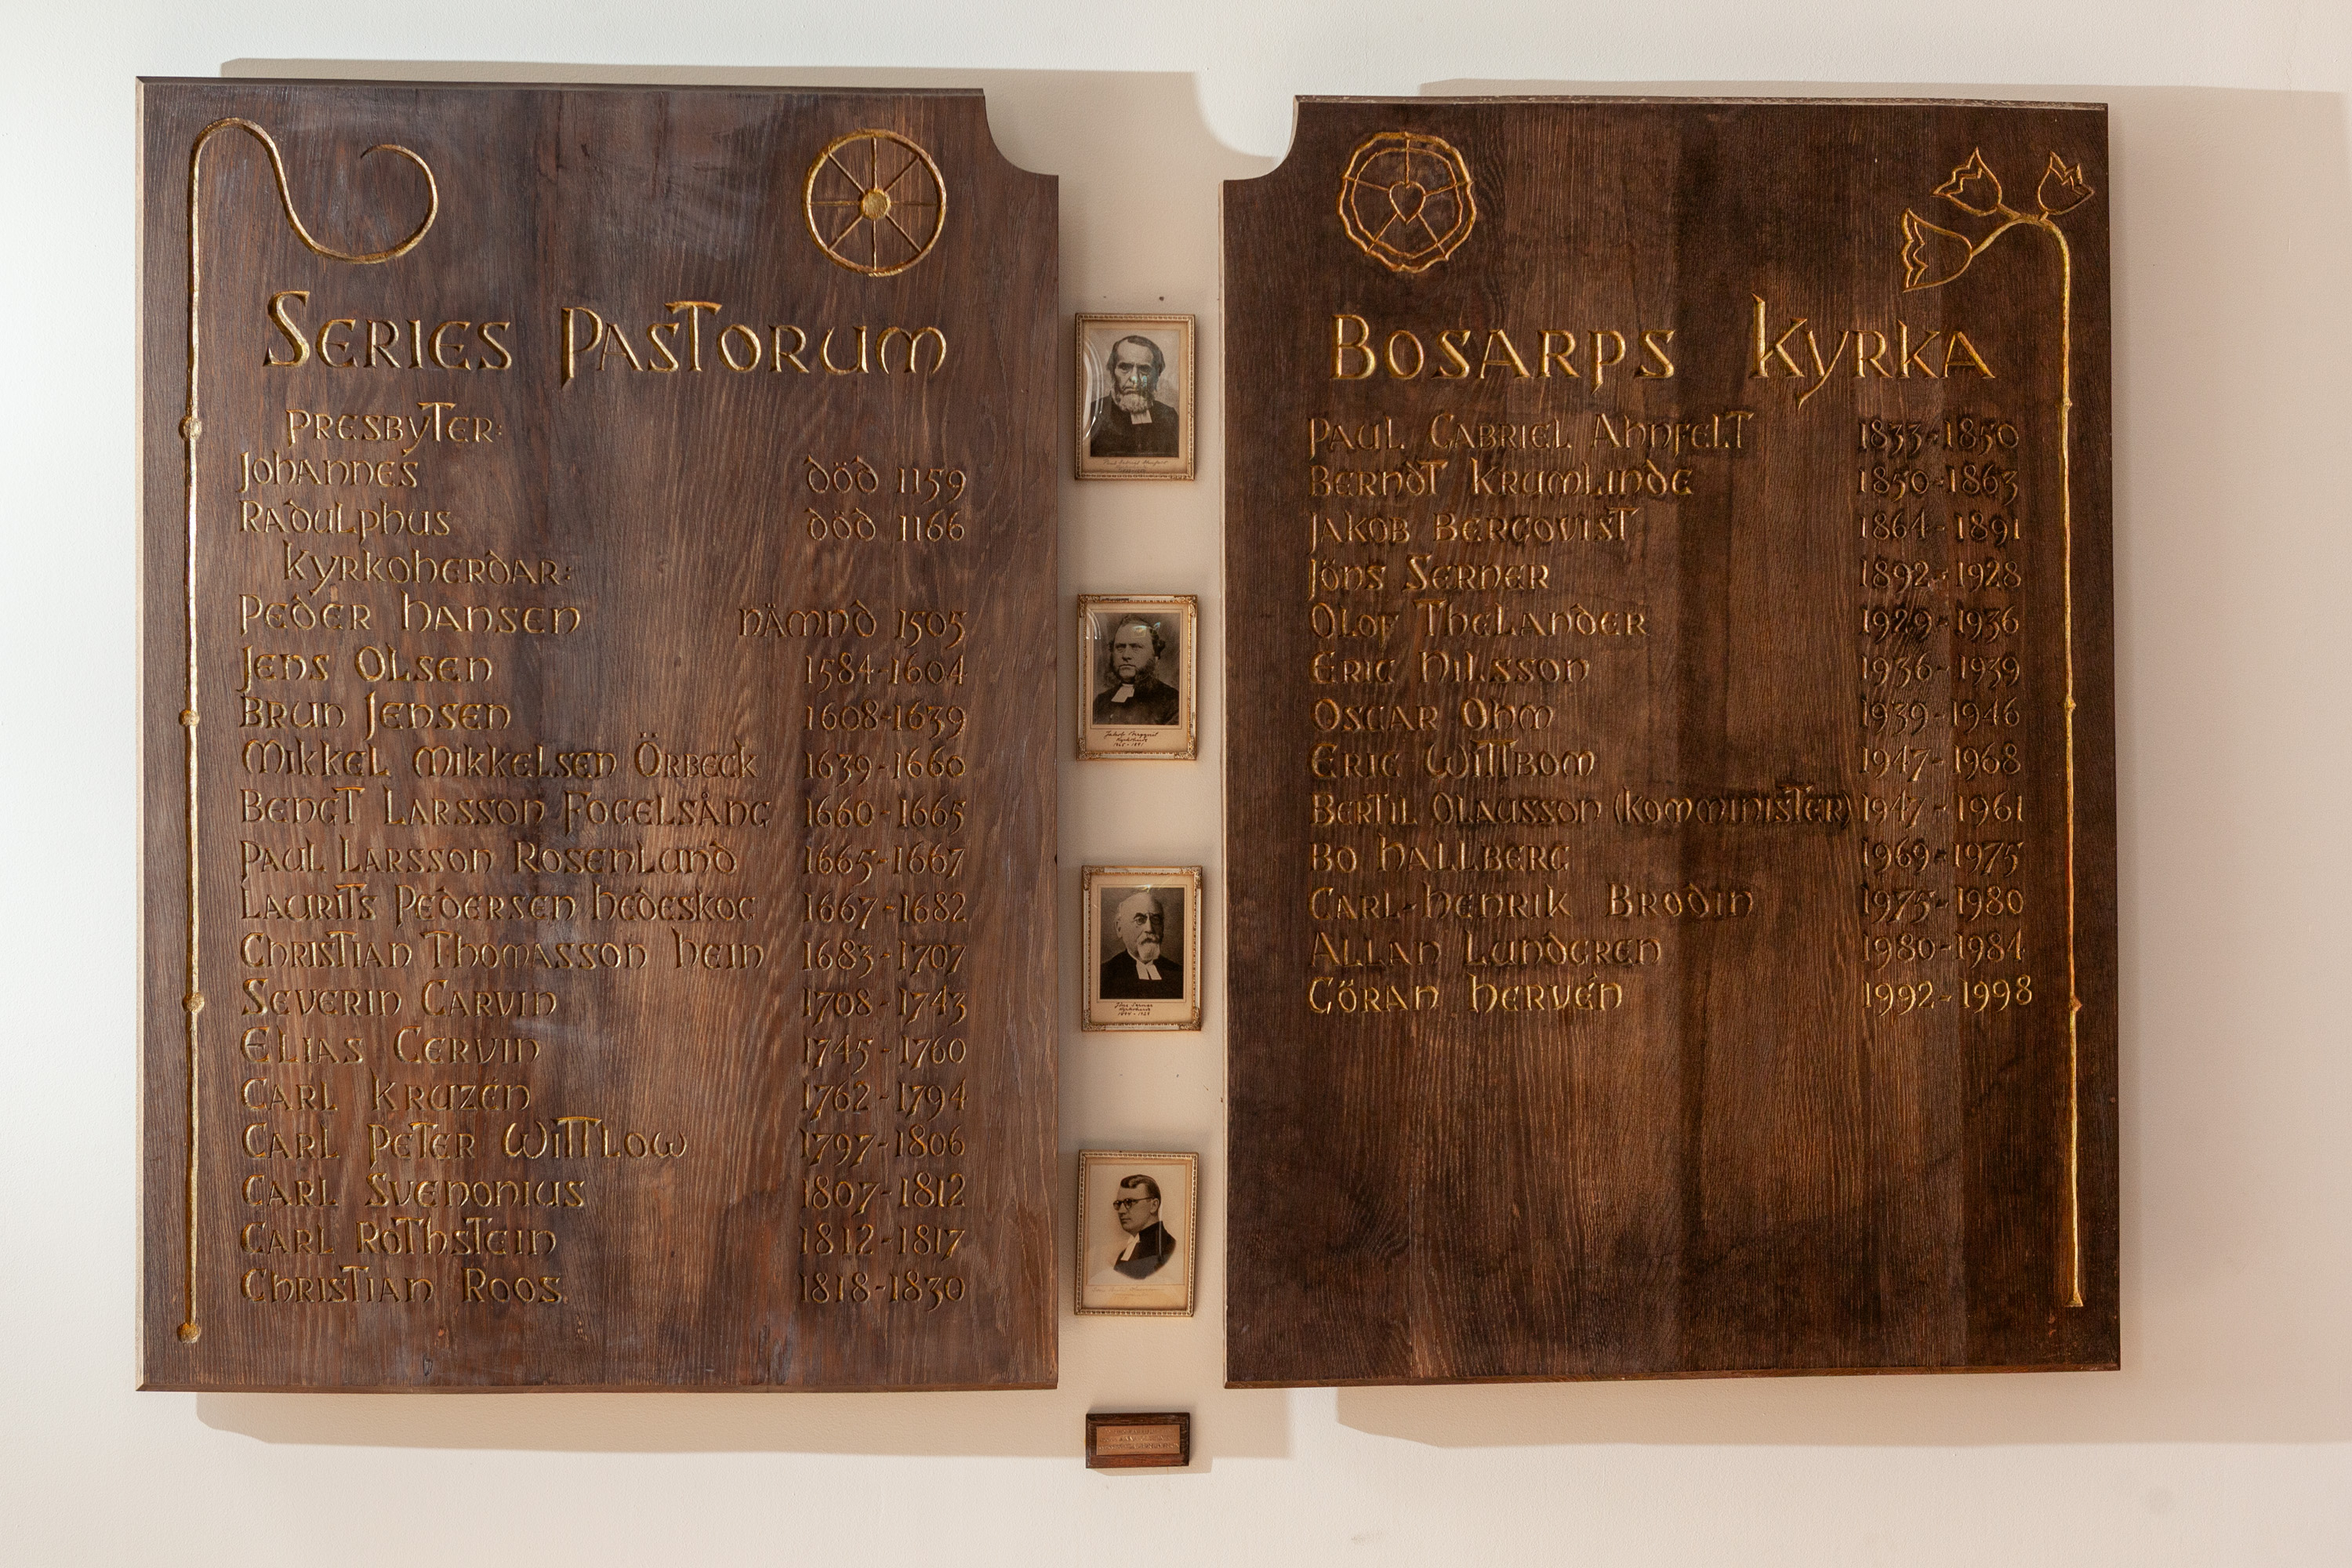 Series Pastorum
Presbyter:
Johannes död 1159
Radulphus död 1166
Kyrkoherdar:
Peder Hansen nämnd 1505
Jens Olsen 1584-1604
Brun Jensen 1608-1639
Mikkel Mikkelsen Örbeck 1639-1660
Bengt Larsson Fogelsång 1660-1665
Paul Larsson Rosenlund 1665-1667
Laurits Pedersen Hedeskog 1667-1682
Christian Thomasson Hein 1683-1707
Severin Carvin 1708-1743
Elias Cervin 1745-1760
Carl Kruzén 1762-1794
Carl Peter Wittlow 1797-1806
Carl Svenonius 1807-1812
Carl Rothstein 1812-1817
Christian Roos. 1818-1830
Bosarps Kyrka
Paul Gabriel Ahnfelt 1833-1850
Berndt Krumlinde 1850-1863
Jakob Bergqvist 1864-1891
Jöns Serner 1892-1928
Olof Thelander 1929-1936
Eric Nilsson 1936-1939
Oscar Ohm 1939-1946
Eric Wittbom 1947-1968
Bertil Olausson (Komminister) 1947-1961
Bo Hallberg 1969-1975
Carl-Henrik Brodin 1975-1980
Allan Lundgren 1980-1984
Göran Hervén 1992-1998